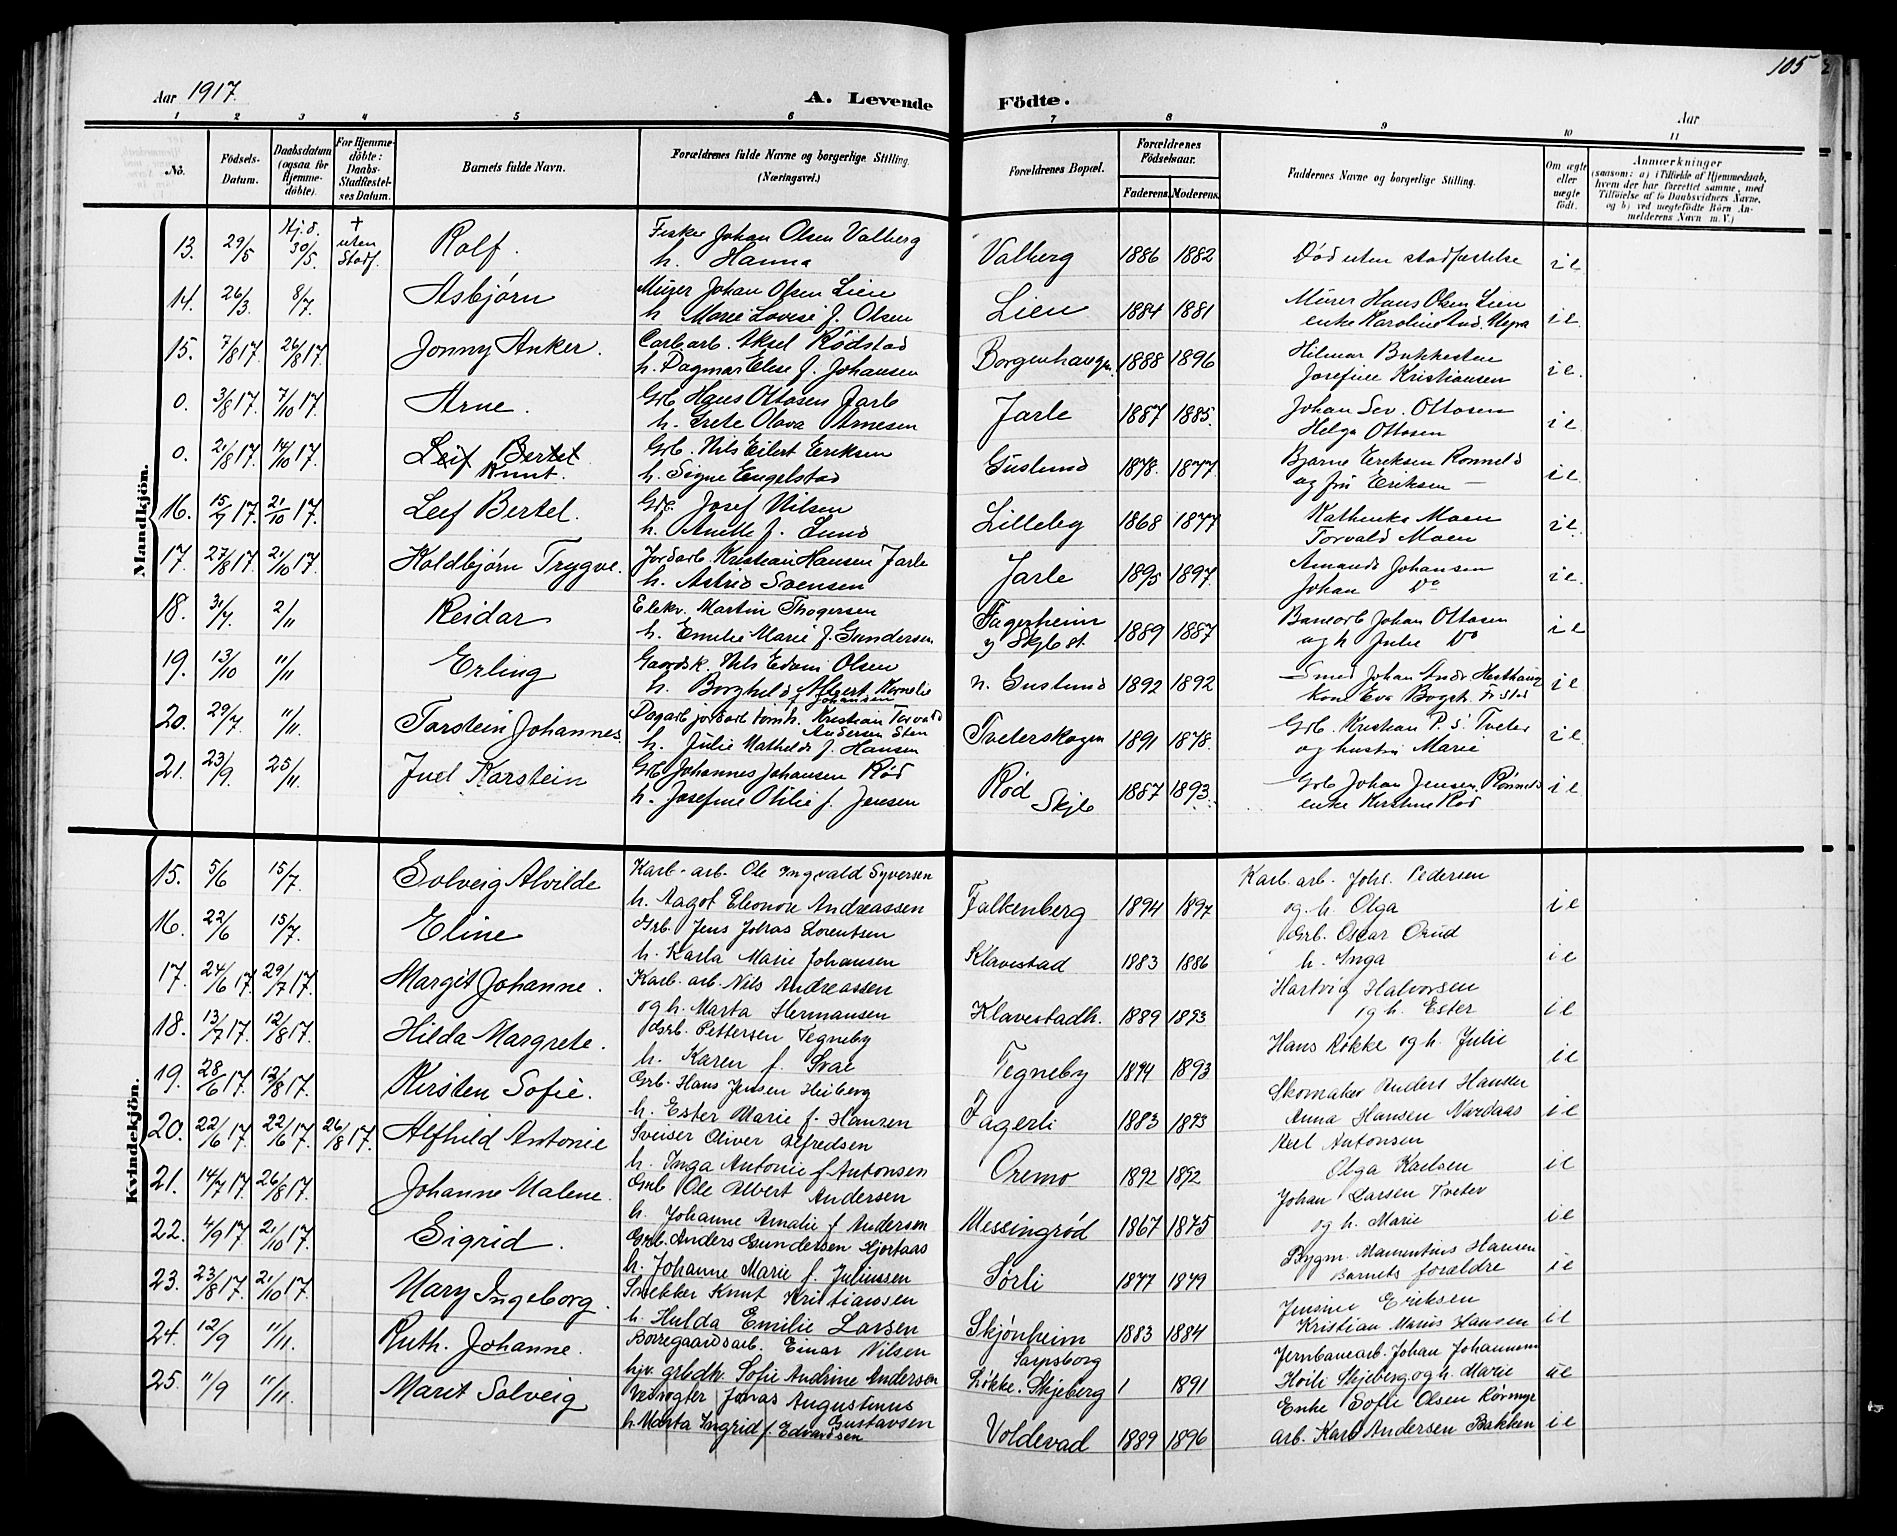 105
Aar 1917.
A. Levende Födte.
Aar
1 2 3 4 5 6 7 8 9 10 11
No.
Födsels-Datum.
Daabsdatum (ogsaa for Hjemmedöbte).
For Hjemmedöbte: Daabs-Stadfæstelses Datum.
Barnets fulde Navn.
Forældrenes fulde Navne og borgerlige Stilling. (Næringsvei.)
Forældrenes Bopæl.
Forældrenes Födselsaar.
Faderens. Moderens.
Faddernes Navne og borgerlige Stilling.
Om ægte eller uægte födt.
Anmærkninger
(saasom: a) i Tilfælde af Hjemmedaab, hvem der har forrettet samme, med Tilföielse af to Daabsvidners Navne, og b) ved uægtefödte Börn Anmelderens Navn m. V.)
Mandkjön.
13. 29/5 Hj.d. 30/5. † uten Stadf. Rolf. Fisker Johan Olsen Valberg
h. Hanna Valberg 1886 1882 Död uten stadfestelse i e
14. 26/3. 8/7. Asbjørn Murer Johan Olsen Lien
h Marie Lovise f. Olsen Lien 1884 1881 Murer Hans Olsen Lien
enke Karoline And. i e
15. 7/8 17. 26/8 17. Jonny Anker. Carb arb. Aksel Rødstad
h. Dagmar Elise f. Johansen Borgenhaugen 1888 1896 Hilmar
Josefine Kristiansen i e.
0. 3/8 17. 7/10 17. Arne. Grb Hans Ottosen Jarle
h. Grete Olava Arnesen Jarle 1887 1885. Johan Sev. Ottosen
Helga Ottosen i e
0. 21/8 17. 14/10 17. Leif Bertel
Knut. Grb. Nils Eilert Eriksen
h. Signe Engelstad Guslund 1878. 1877. Bjarne Eriksen
og fru Eriksen — i e
16. 15/9 17. 21/10 17. Leif Bertel. Grb. Josef Nilsen
h. Anette f. Lund Lilleby 1868 1877 Kathinka Moen
Torvald Moen i e.
17. 27/8 17. 21/10 17. Koldbjørn Trygve. Jordarb. Kristian Hansen Jarle
h. Astrid Svensen Jarle 1895 1897. Amanda Johansen
Johan Do i e.
18. 31/7. 2/11 Reidar Elekr. Martin Thogersen
h. Emilie Marie f. Gundersen Fagerheim
y Skjb st. 1889 1887 Banearb Johan Ottosen
og h Julie Do i e
19. 13/10 11/11 Erling Gaardsk. Nils Edvin Olsen
h. Borghild Alfgert Kornelie
f. Johansen n. Guslund 1892 1892 Smed Johan Andr
kone Eva i e
20. 29/7 11/11. Torstein Johannes Dagarb jordarb tömh. Kristian Torvald
Andersen Sten
h. Julie Mathilde f. Hansen Tveterskogen 1891 1878. Grb. Kristian P. S. Tveter
og hustru Marie i e
21. 23/9. 25/11. Juel Karstein Grb Johannes Johansen Rød
h. Josefine Otilie f. Jensen Rød Skjb 1887 1893. Grb Johan Jensen
enke Kirstine Rød i e
Kvindekjön.
15. 5/6 15/7. Solveig Alvilde Karb-arb. Ole Ingvald Syversen
h. Aagot Eleonore Andreassen Falkenberg 1894 1897 Karb. arb. Johs. Pedersen
og h. Olga i e
16. 22/6 15/7. Eline Grb. Jens Julius Lorentsen
h. Karla Marie Johansen Klavestad 1883 1886 Grb. Oscar
h. Inga i e
17. 24/6 17. 29/7 17. Margit Johanne. Karb. arb. Nils Andreassen
og h. Marta Hermansen Klavestadh. 1889 1893 Hartvig Halvorsen
og h. Ester i e
18. 13/7 17. 12/8 17. Hilda Margrete. Grb. Pettersen Tegneby
h. Karen f. Svae Tegneby 1894 1893 Hans Røkke og h. Julie i e
19. 28/6 17. 12/8 17. Kirsten Sofie. Grb. Hans Jensen Heiberg
h. Ester Marie f. Hansen Fagerli 1883 1893 Skomaker Anders Hansen
Anna Hansen Nordaas i e
20. 22/6 17. 22/6 17. 26/8 17. Alfhild Antonie Sveiser Oliver Alfredsen
h. Inga Antonie f Antonsen Oremo 1892 1892 Karl Antonsen
Olga Karlsen i e
21. 14/7 17. 26/8 17. Johanne Malene. Grb Ole Albert Andersen
h. Johanne Amalie f Andersen Messingrød 1867 1875 Johan Larsen Tveter
og h. Marie i e
22. 4/9 17. 21/10 17. Sigrid. Grb. Anders Gundersen Hjortaas
h. Johanne Marie f. Juliussen Sørli 1877 1879 Bygm. Mamentius Hansen
Barnets forældre i e
23. 23/8 17. 21/10 17. Mary Ingeborg. Snekker Knut Kristiansen
h. Hulda Emilie Larsen Skjønheim 1883 1884 Jensine Eriksen
Kristian Marius Hansen i e
24. 12/9 11/11. Ruth. Johanne. Borregaardsarb. Einar Nilsen
Sarpsborg
ugv. grbdh. Sofie Andrine Andersen Løkke. Skjeberg 1 1891 Jernbanearb. Johan Johannesen
Høili Skjeberg og h. Marie u e
25. 11/9 11/11. Marit Solveig Veivogter Jonas Augustinus
Gustavsen
h. Marta Ingrid f. Edvardsen Voldevad 1889 1896 Enke Sofie Olsen Rörmyr
arb. Karl Andersen Bakken i e